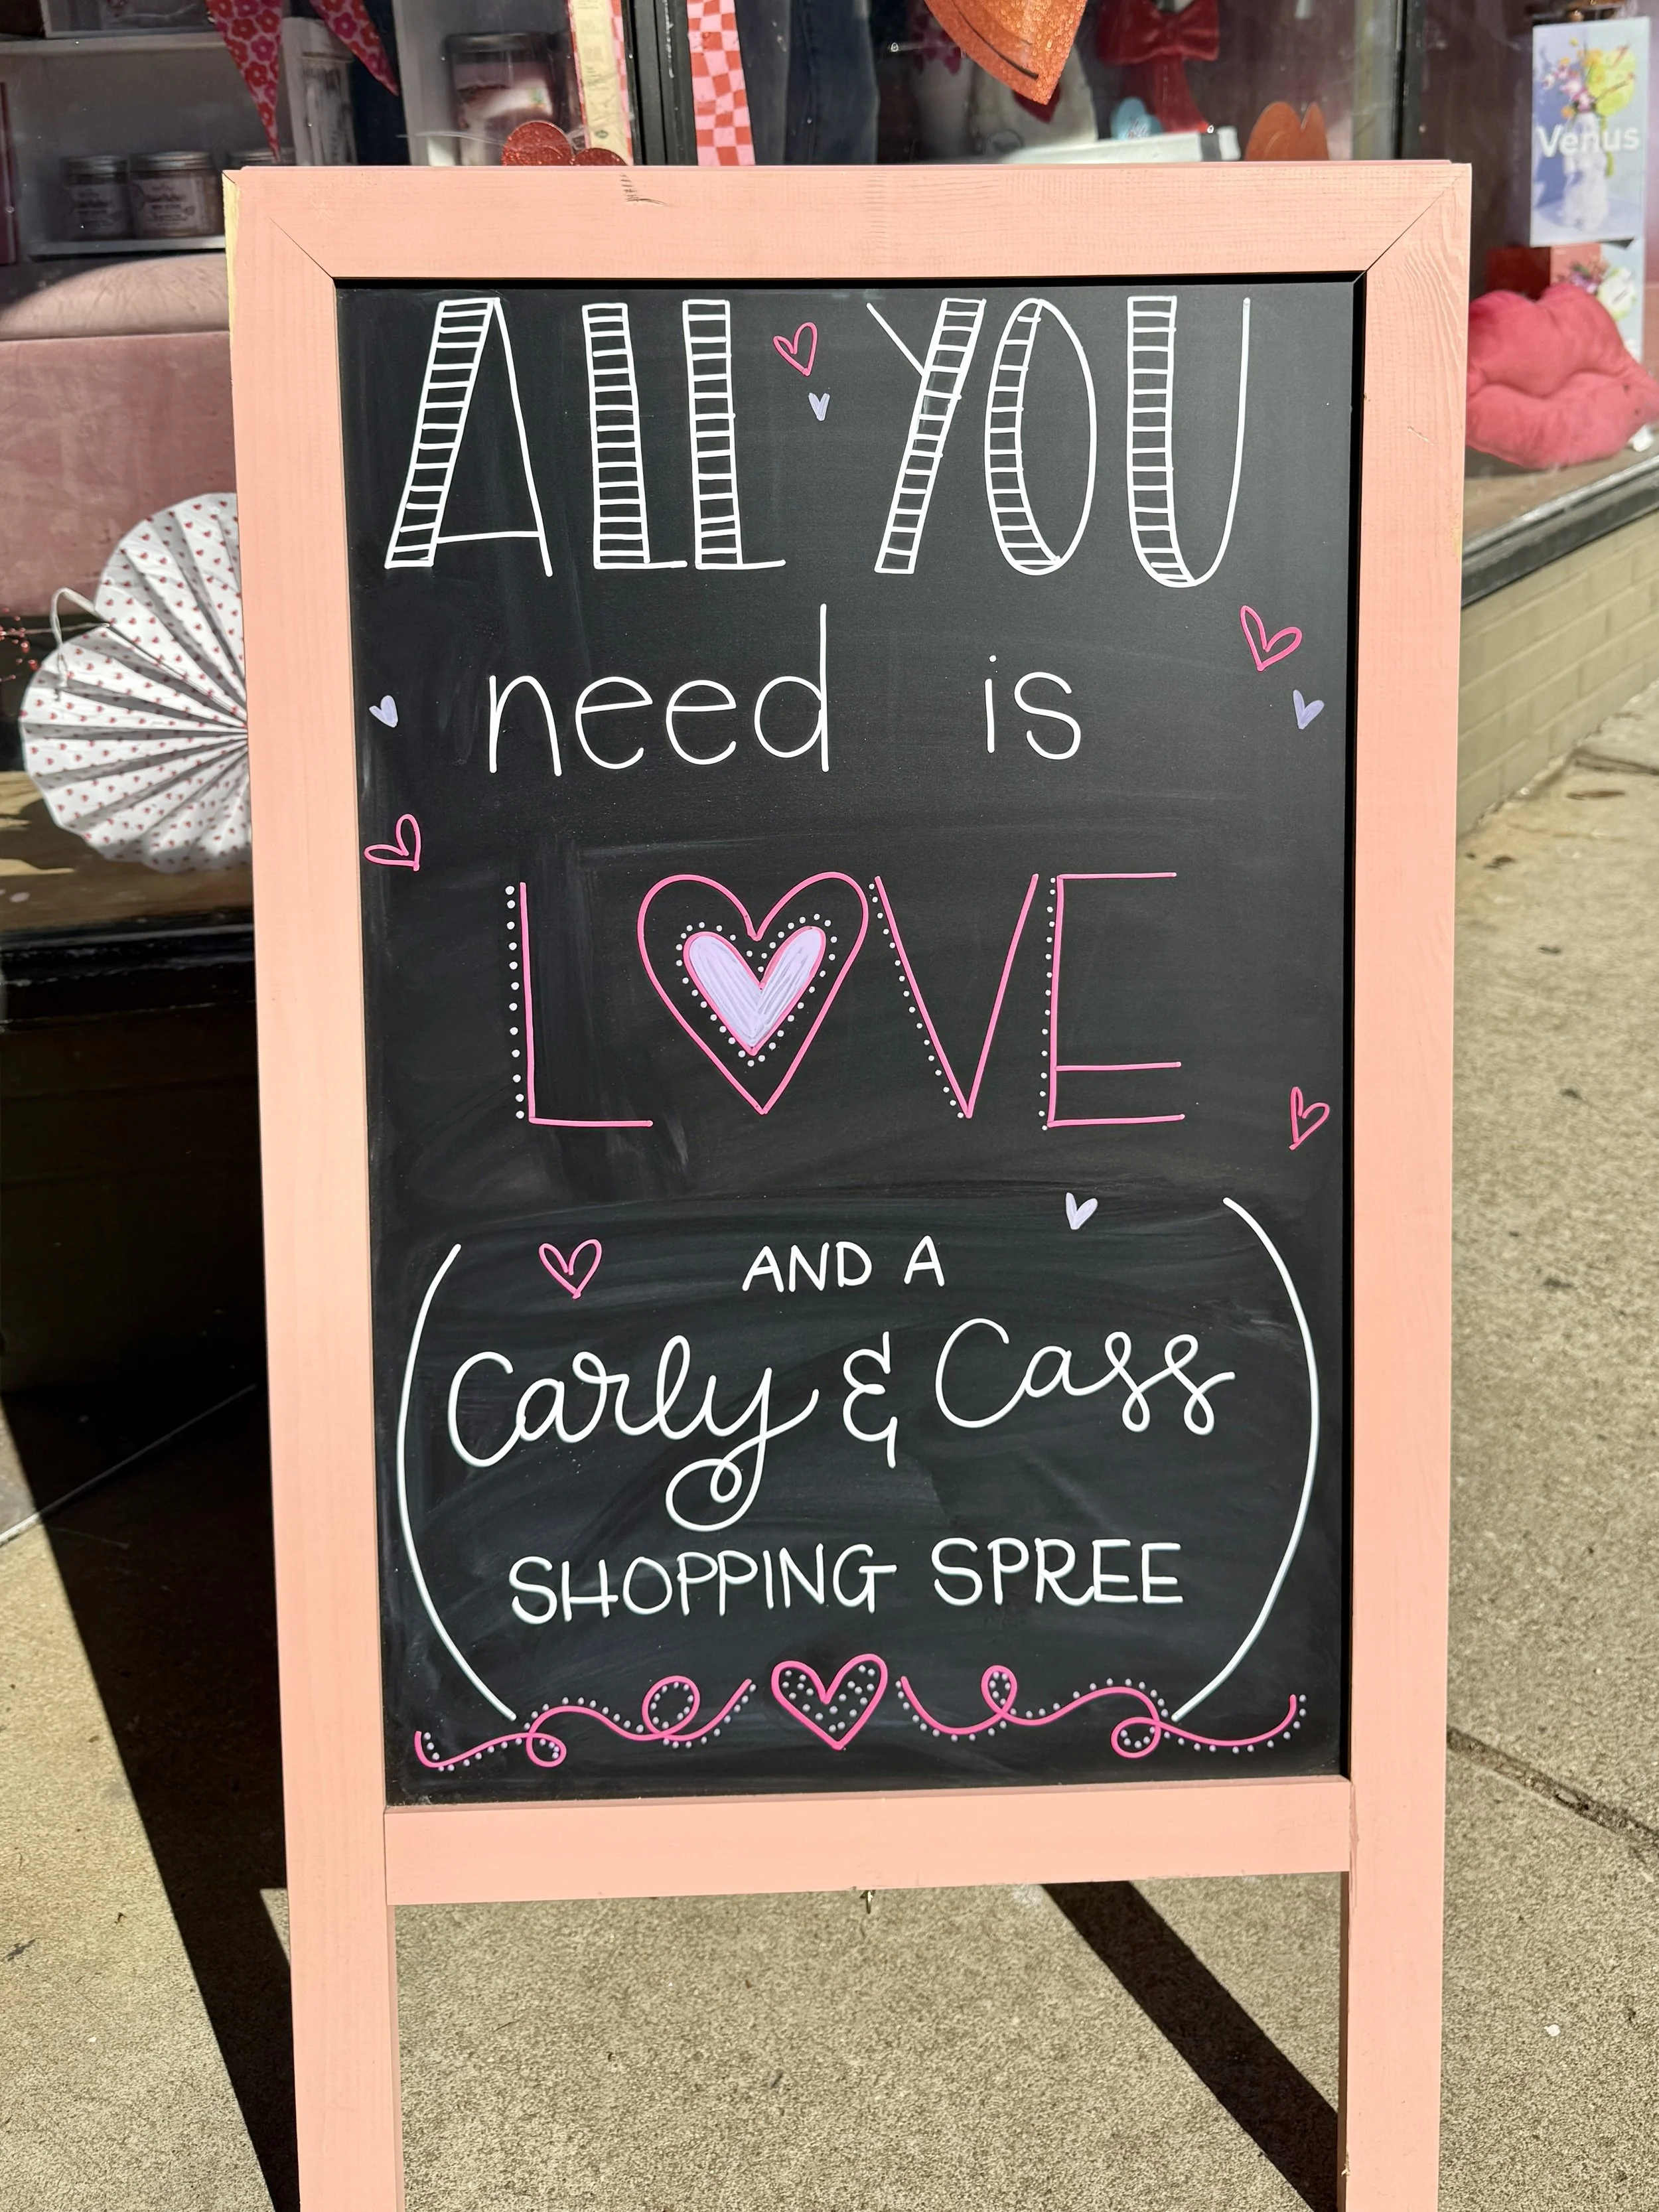 Venus
ALL YOU
need is
LOVE
AND A
Carly & Cass
SHOPPING SPREE